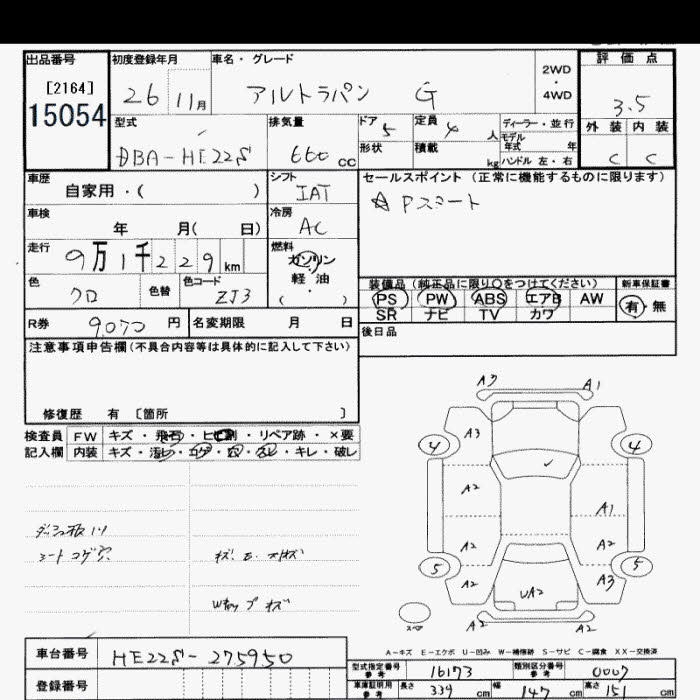 出品番号 初度登録年月 車名・グレード 評価点
[2164] 2WD・4WD
15054 26 11月 アルトラパン G 3.5
型式 排気量 ドア 5 定員 4人 ディーラー・並行 外装 内装
DBA-HE22S 660cc 形状 積載 kg モデル年式 年 C C
ハンドル 左・右
車歴 シフト セールスポイント (正常に機能するものに限ります)
自家用・( ) IAT ☆ Pスタート
車検 冷房
年 月( 日) AC
走行 燃料
9万1千229km ガソリン
軽油
( ・ )
色 色替 色コード 装備品 (純正品に限り○をつけてください) 新車保証書
クロ ZJ3 PS PW ABS エアB AW 有・無
SR ナビ TV カワ
R券 9070円 名変期限 月 日 後日品
注意事項申告欄(不具合内容等は具体的に記入して下さい)
修復歴 有 〔箇所 〕
検査員 FW キズ・飛石・ヒビ割・リペア跡・×要
記入欄 内装 キズ・汚レ・コゲ・穴・スレ・キレ・破レ
シートコゲ穴
A3 A1
4 A3 4
A2 A1
A2 A2
5 A2 A3 5
UA2
スペア A2 A2
A-キズ E-エクボ U-凹み W-補修跡 S-サビ C-腐食 XX-交換済
車台番号 HE22S-275950
登録番号
型式指定番号 参考 16173 類別区分番号 参考 0007
車庫証明用 参考 長さ 339cm 幅 147cm 高さ 151cm